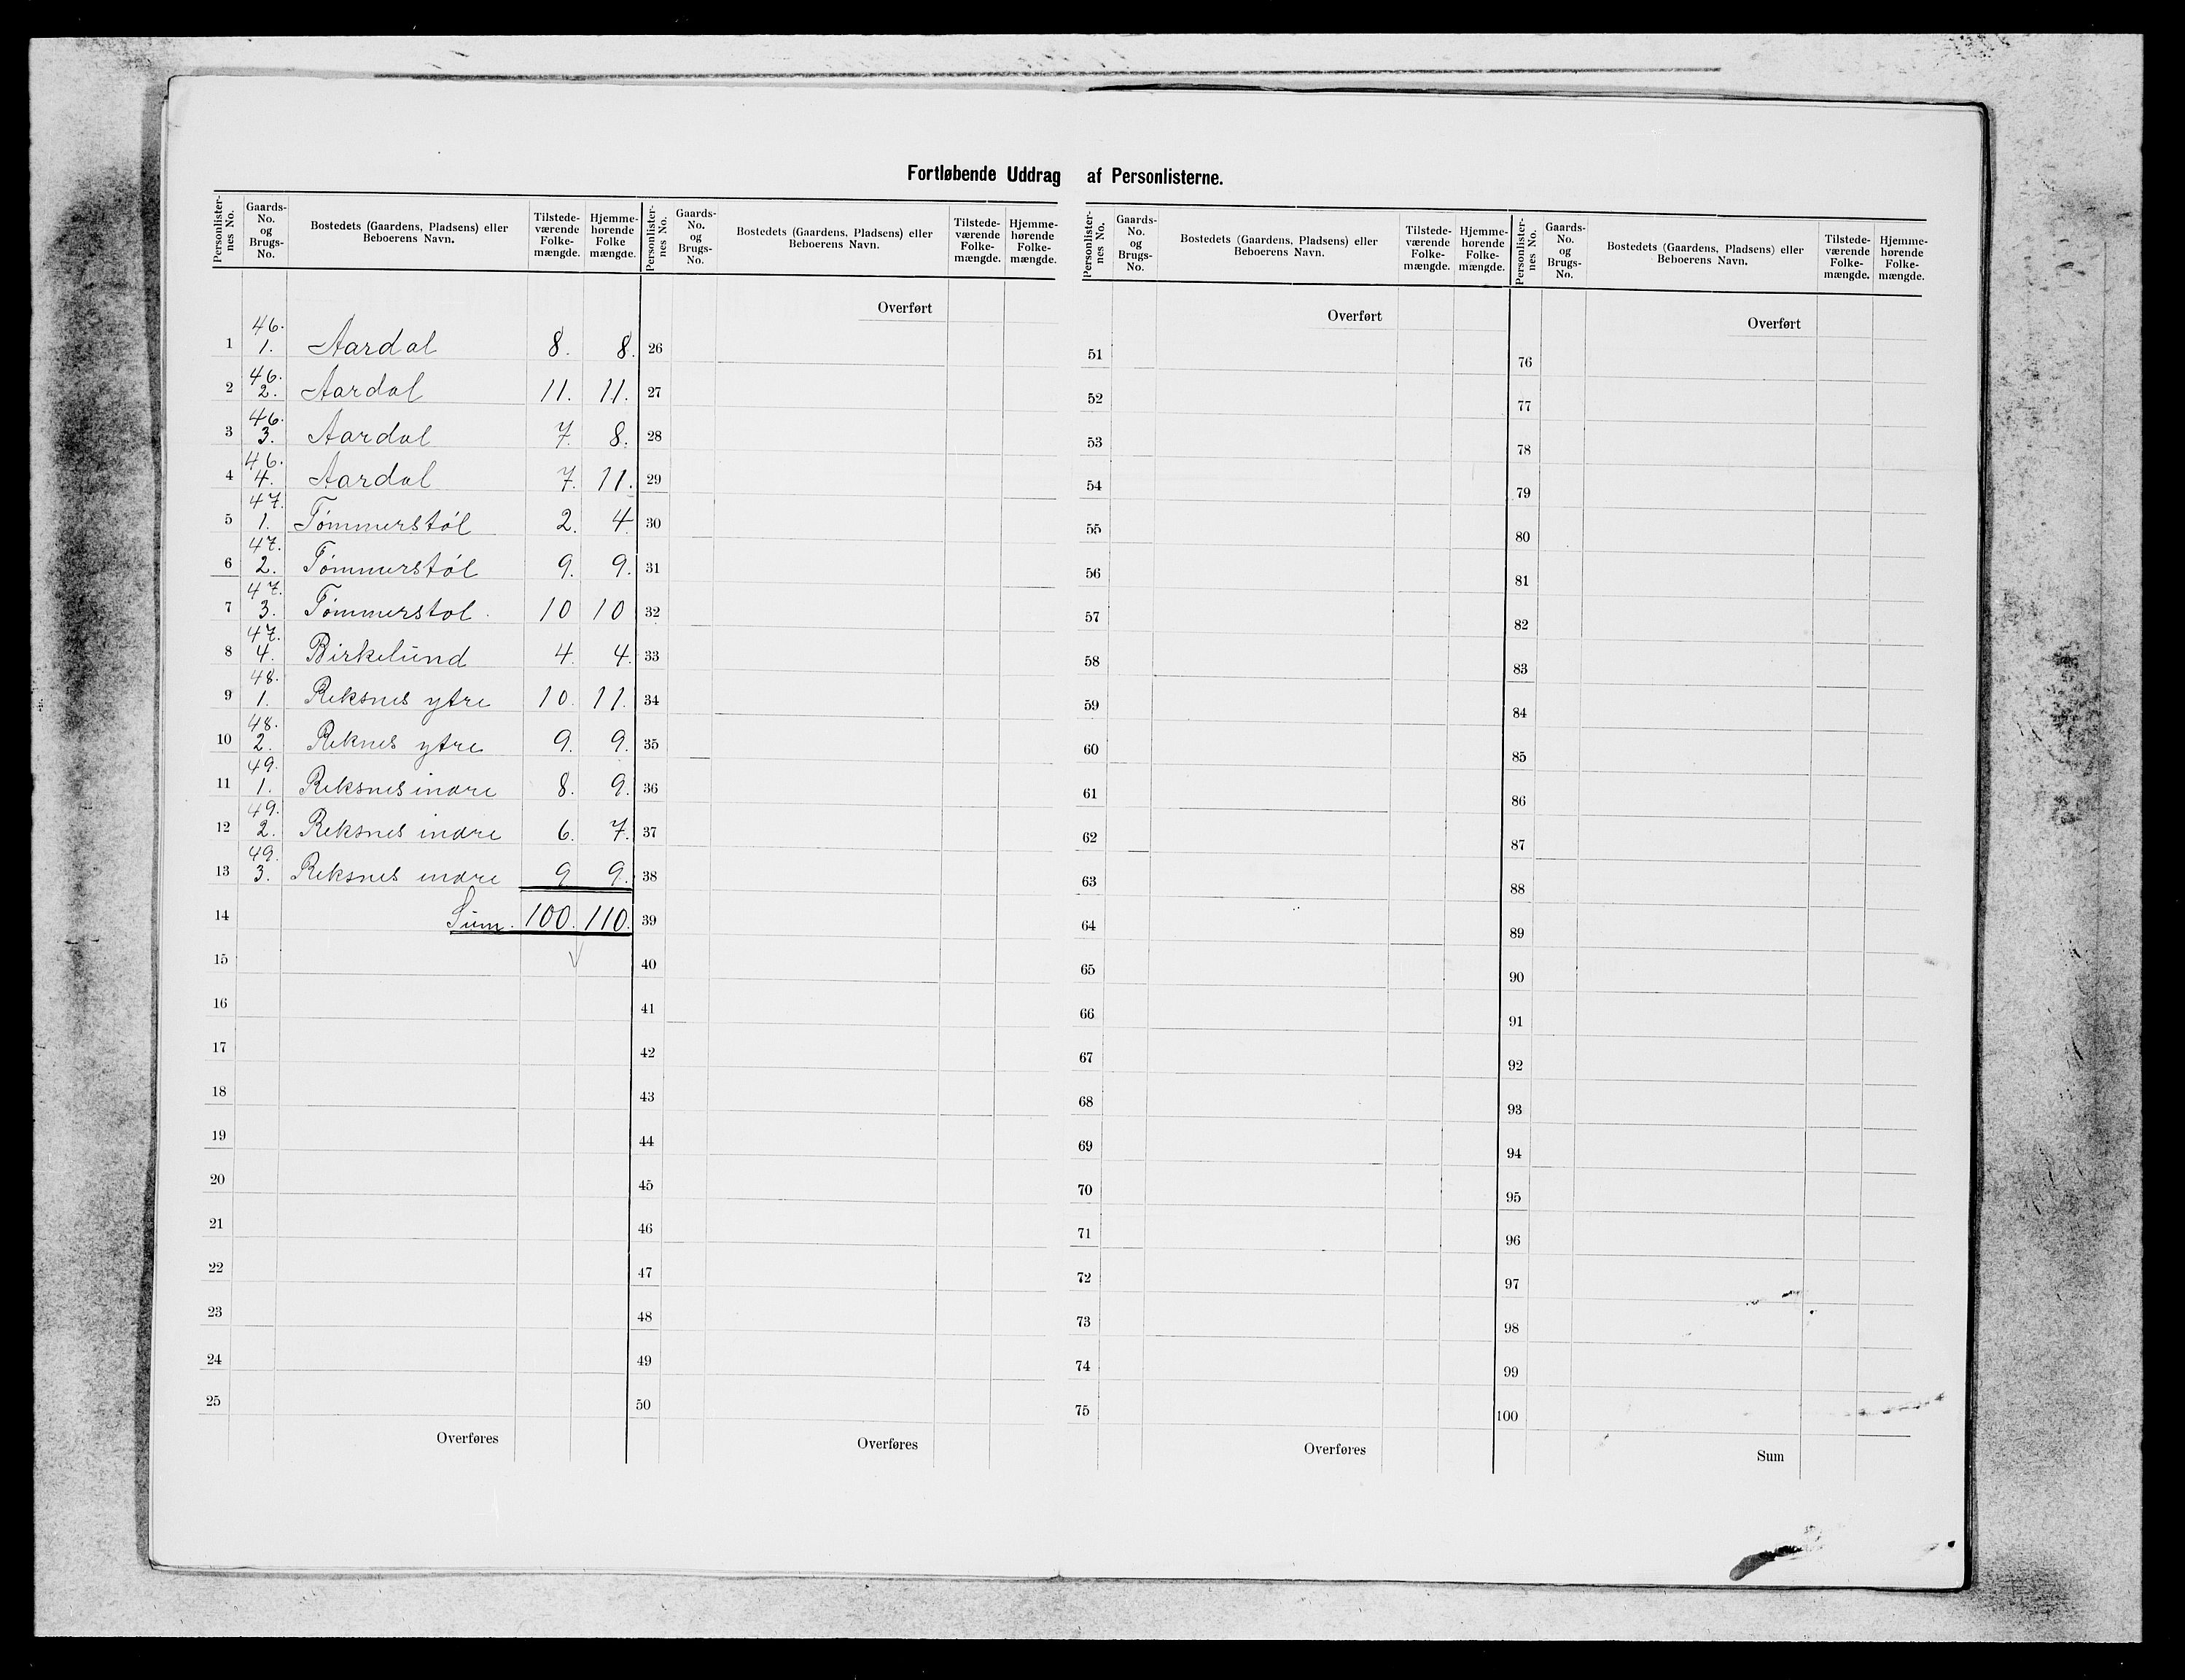 Fortløbende Uddrag af Personlisterne.
Personlister-nes No. Gaards-No. og Brugs-No. Bostedets (Gaardens, Pladsens) eller Beboerens Navn. Tilstede-værende Folke-mængde. Hjemme-hørende Folke mængde.
46.
1 1. Aardal 8. 8.
46.
2 2. Aardal 11. 11.
46.
3 3. Aardal 7. 8.
46.
4 4. Aardal 7. 11.
47.
5 1. Tømmerstøl 2. 4
47.
6 2. Tømmerstøl 9. 9.
47.
7 3. Tømmerstøl 10 10
47.
8 4. Birkelund 4. 4.
48.
9 1. Reksnes ytre 10. 11.
48.
10 2. Reknes ytre 9. 9.
49.
11 1. Reksnes indre 8. 9.
49.
12 2. Reksnes indre 6. 7.
49.
13 3. Reksnes indre 9 9.
14 Sum. 100. 110.
15
16
17
18
19
20
21
22
23
24
25
Overføres
Personlister-nes No. Gaards-No. og Brugs-No. Bostedets (Gaardens, Pladsens) eller Beboerens Navn. Tilstede-værende Folke-mængde. Hjemme-hørende Folke-mængde.
Overført
26
27
28
29
30
31
32
33
34
35
36
37
38
39
40
41
42
43
44
45
46
47
48
49
50
Overføres
Personlister-nes No. Gaards-No. og Brugs-No. Bostedets (Gaardens, Pladsens) eller Beboerens Navn. Tilstede-værende Folke-mængde. Hjemme-hørende Folke-mængde.
Overført
51
52
53
54
55
56
57
58
59
60
61
62
63
64
65
66
67
68
69
70
71
72
73
74
75
Overføres
Personlister-nes No. Gaards-No. og Brugs-No. Bostedets (Gaardens, Pladsens) eller Beboerens Navn. Tilstede-værende Folke-mængde. Hjemme-hørende Folke-mængde.
Overført
76
77
78
79
80
81
82
83
84
85
86
87
88
89
90
91
92
93
94
95
96
97
98
99
100
Sum